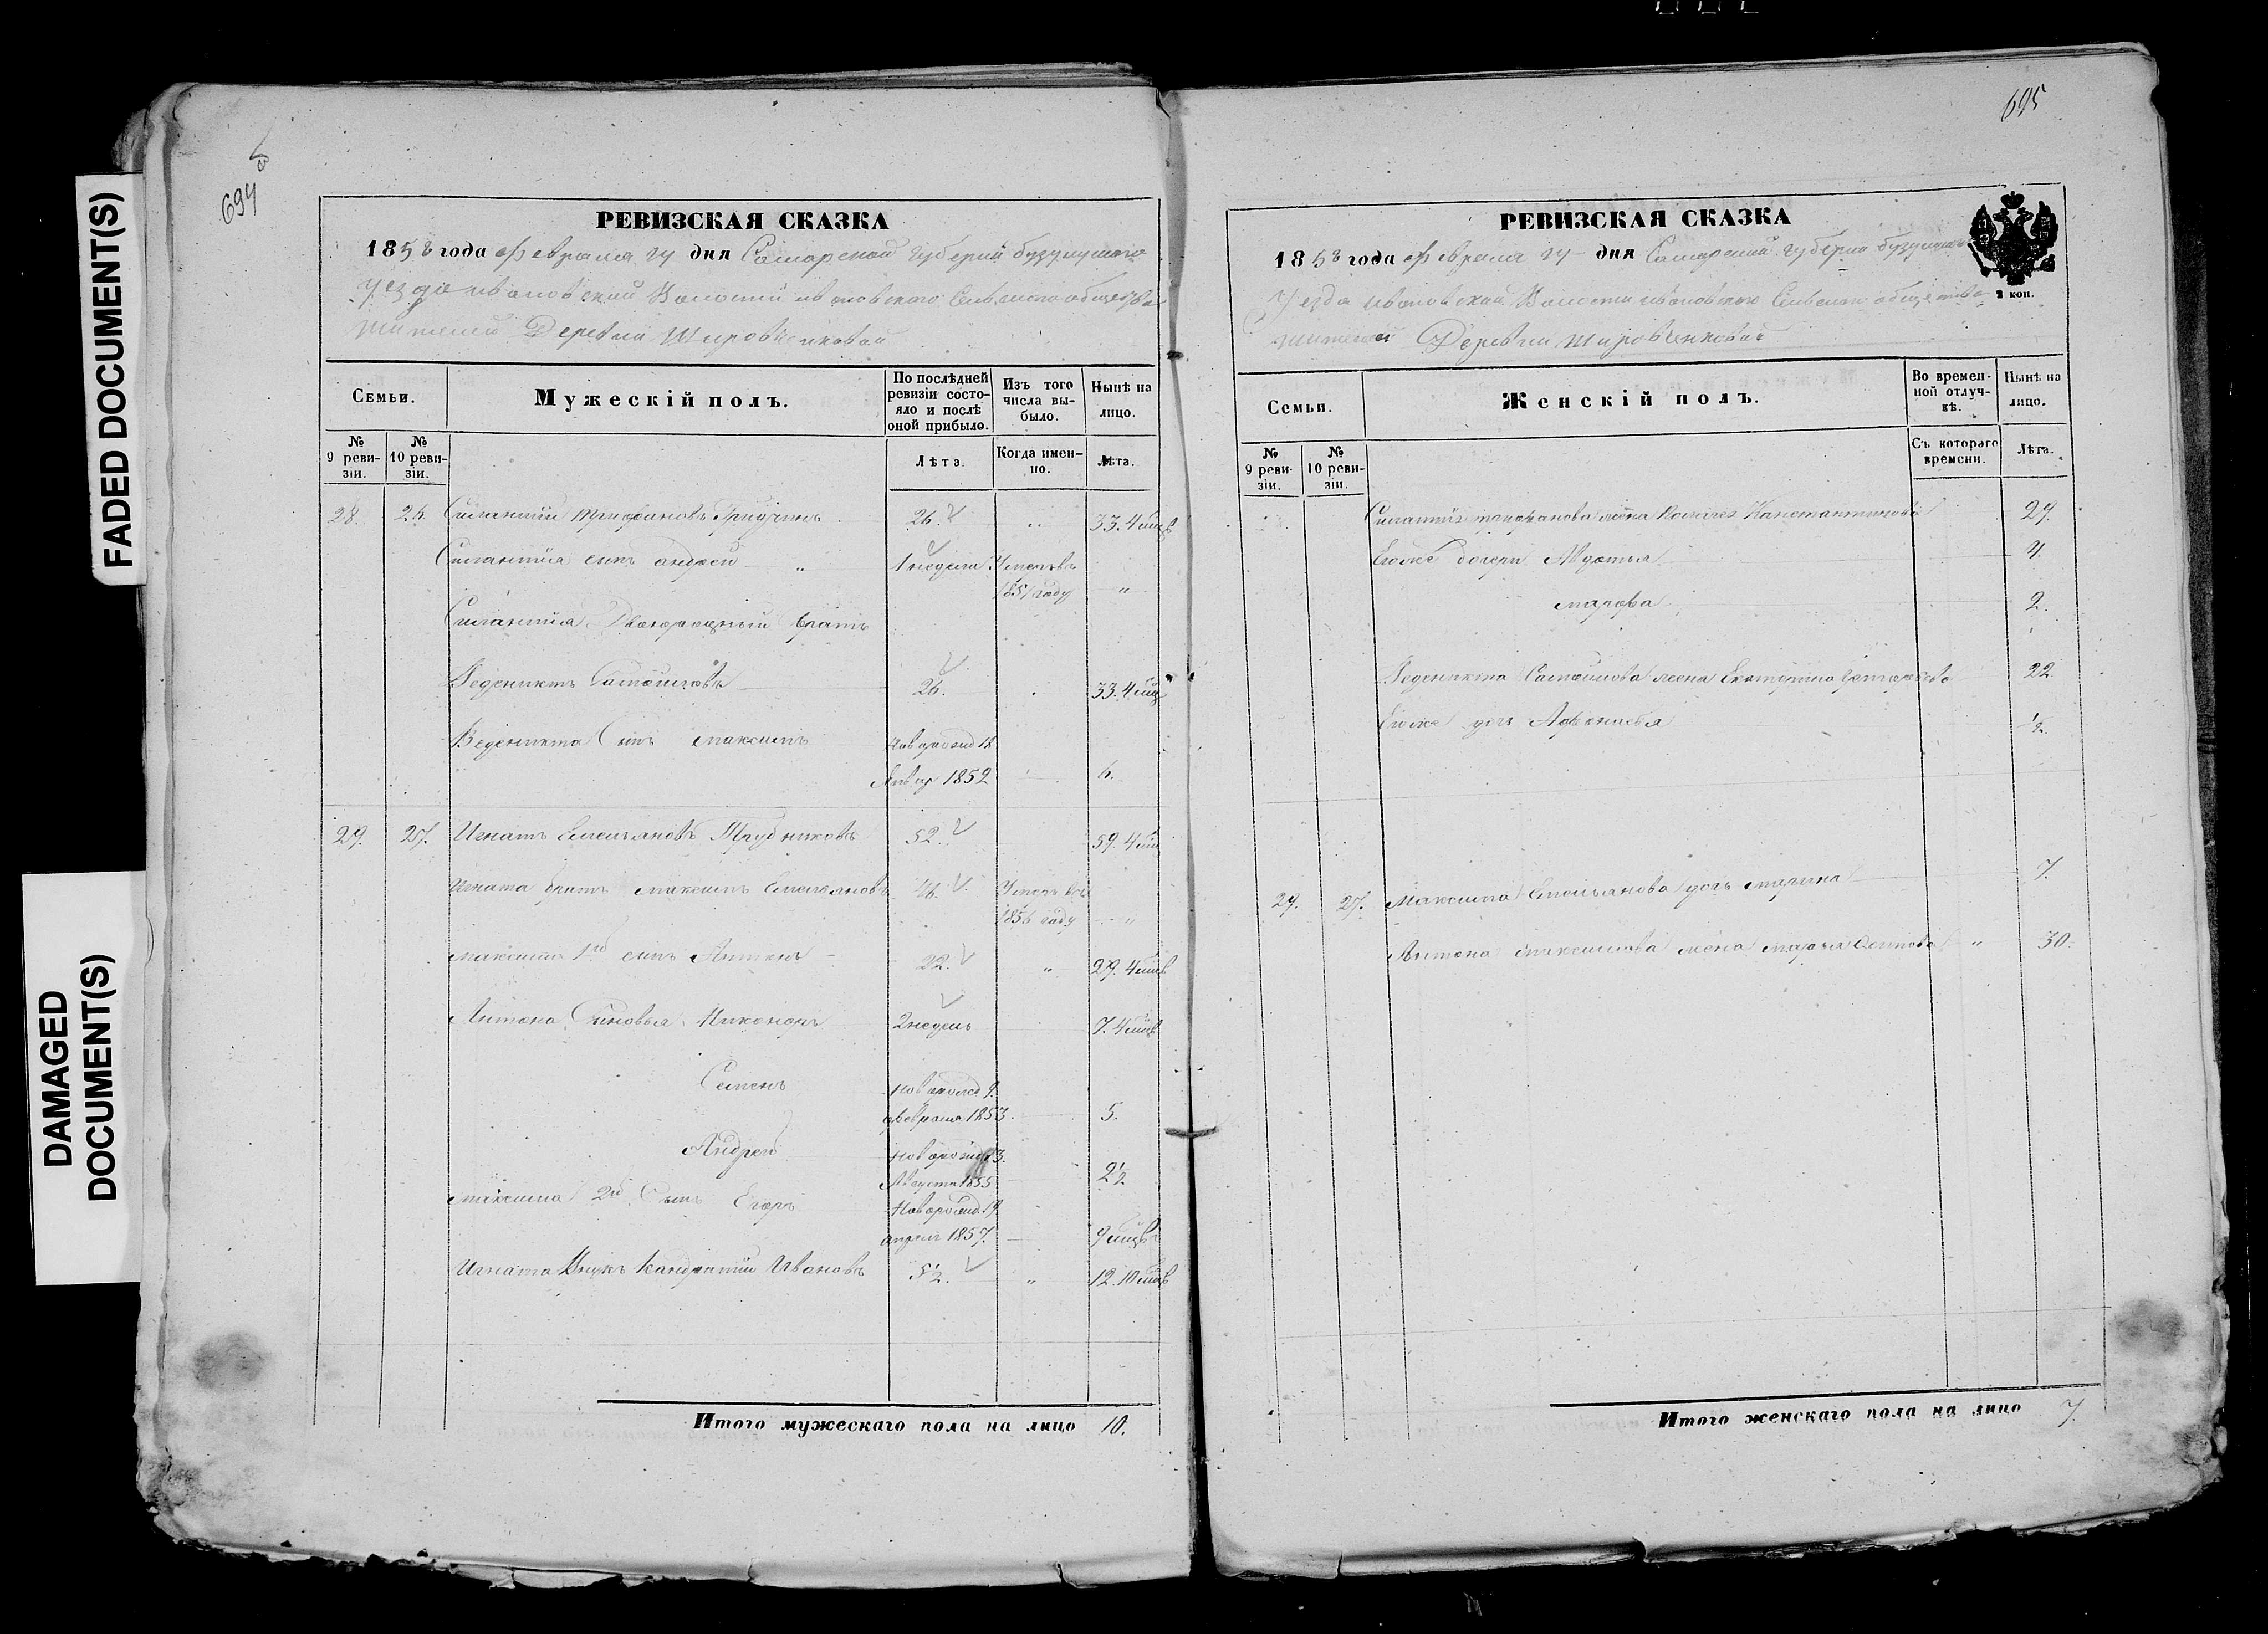 FADED DOCUMENT(S)
DAMAGED
DOCUMENT(S)
694
РЕВИЗСКАЯ СКАЗКА
1858 года февраля дня Самарской губернии бузулуцкого
уезда ивановской Волости ивановского Сельского общества
жителей Деревни
Семьи.
Мужескій полъ.
По послѣдней ревизіи состояло и послѣ оной прибыло.
Изъ того числа выбыло.
Нынѣ на лицо.
№ 9 ревизіи.
№ 10 ревизіи.
Лѣта.
Когда именно.
Лѣта.
28. 26. Силантий 26. 33. 4
Силантия сынъ андрей 1 неделя Умеръ въ
1851 году
Силантия Двоюродный братъ
26. 33. 4
Веденикта Сынъ максимъ новорожд 18
Январ 1852 6.
29. 27. Игнатъ Емельяновъ Трудниковъ 52. 59. 4
Игната братъ максимъ Емельяновъ 46. Умеръ въ
1856 году
максима 1й сынъ Антонъ 22. 29. 4
Антона Сыновья Никоноръ 2 недель 7. 4
Семенъ новорожд 9.
февраля 1853. 5.
Андрей новорожд 23.
Августа 1855 2½
максима 2й Сынъ Егоръ новорожд 19
апреля 1857. 9
Игната Внукъ Кандратий Ивановъ 5½. 12. 10
Итого мужескаго пола на лицо 10.
695
РЕВИЗСКАЯ СКАЗКА
1858 года февраля дня Самарской губернии
2 коп.
Уезда ивановской Волости ивановского Сельского общества
жителей Деревни
Семьи.
Женскій полъ.
Во временной отлучкѣ.
Нынѣ на лицо.
№ 9 ревизіи.
№ 10 ревизіи.
Съ котораго времени.
Лѣта.
Силантия жена Канстантинова 29.
Евоже дочери Авдотья 4.
марфа 2.
Веденикта Самойлова жена Екатерина 22
Евоже дочь Афонасья ½.
29. 27. Максима Емельянова дочь марина 7.
Антона максимова жена марья Осипова 30.
Итого женскаго пола на лицо 7.